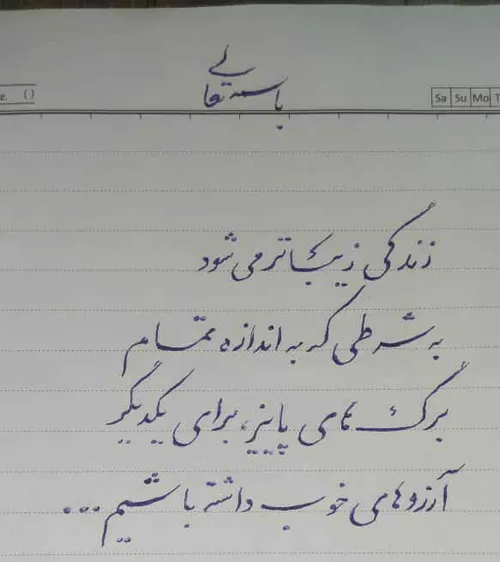 باسمه تعالی
e. ( )
Sa Su Mo T
زندگی زیباتر می شود
به شرطی که به اندازه تمام
برگ های پاییز، برای یکدیگر
آرزوهای خوب داشته باشیم...